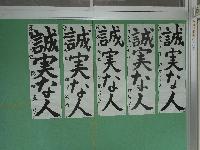 誠実な人
誠実な人
誠実な人
誠実な人
誠実な人